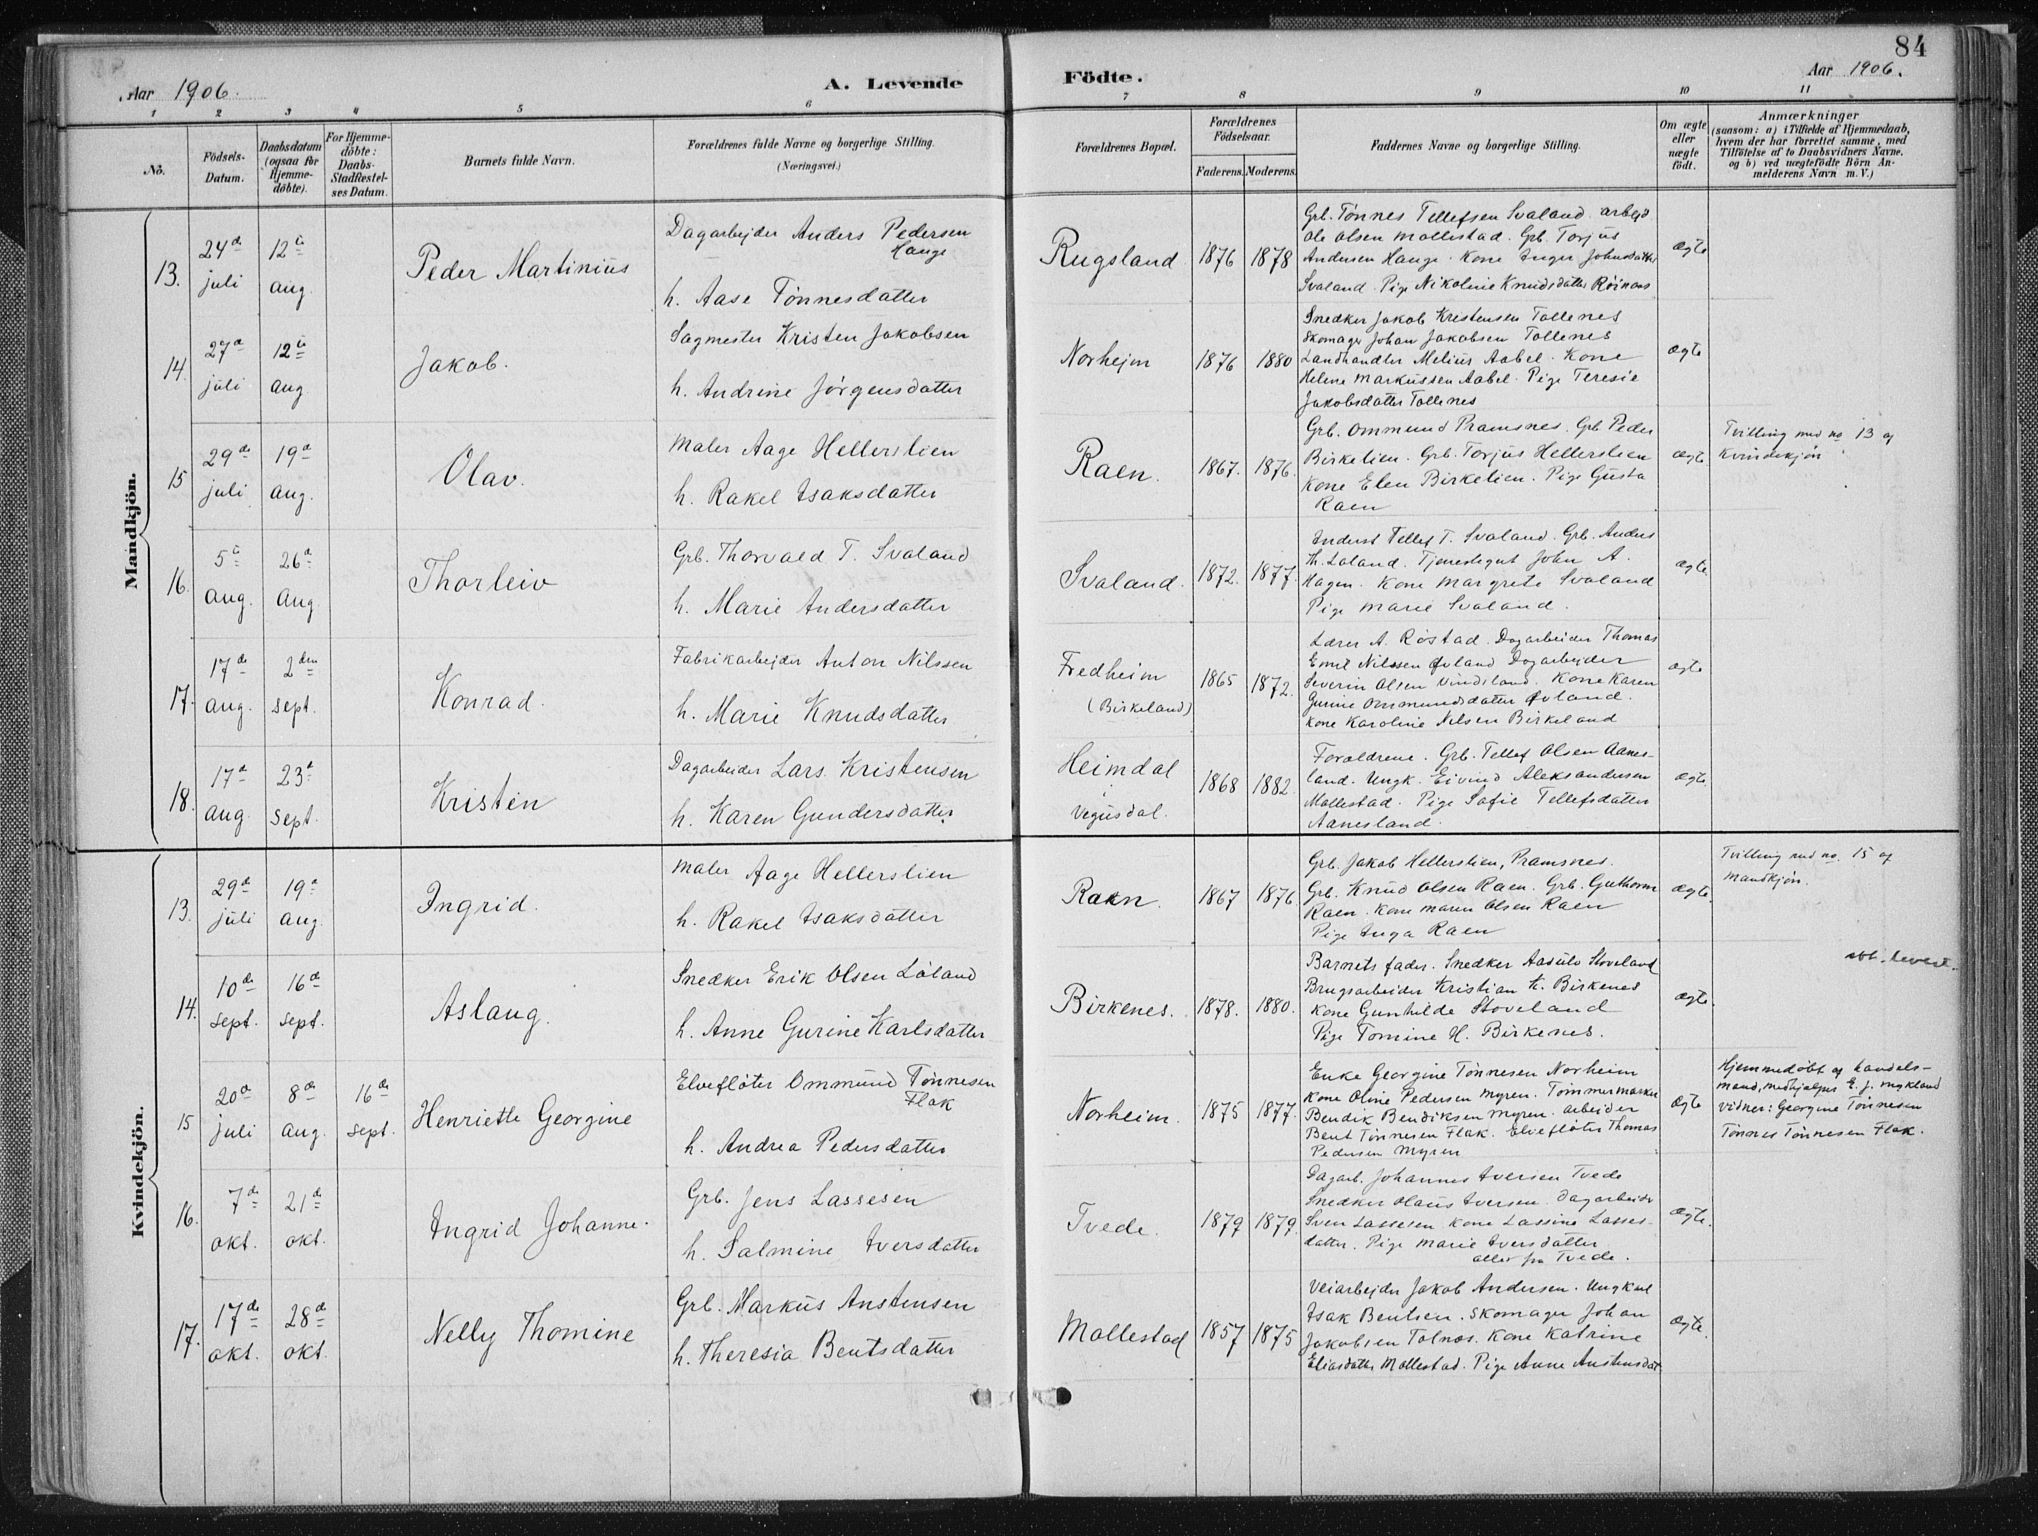 84
Aar 1906.
A. Levende Födte.
Aar 1906.
1 2 3 4 5 6 7 8 9 10 11
No.
Födsels-Datum.
Daabsdatum (ogsaa for Hjemmedöbte).
For Hjemmedöbte: Daabs-Stadfæstelses Datum.
Barnets fulde Navn.
Forældrenes fulde Navne og borgerlige Stilling.
(Næringsvei.)
Forældrenes Bopæl.
Forældrenes Födselsaar.
Faderens. Moderens.
Faddernes Navne og borgerlige Stilling.
Om ægte eller uægte födt.
Anmærkninger
(saasom: a) i Tilfælde af Hjemmedaab,
hvem der har forrettet samme, med
Tilföielse af to Daabsvidners Navne,
og b) ved uægtefödte Börn Anmelderens Navn m. V.)
Mandkjön.
13.
24de juli
12te aug.
Peder Martinius
Dagarbejder Anders Pedersen
Hauge
h. Aase Tönnesdatter
Rugsland
1876 1878
Grb. Tönnes Tellefsen Svaland. arbejd
Ole Olsen Mollestad. Grb. Torjus
Andersen Hauge. Kone Inger Johnsdatter
Svaland. Pige Nikoline Knudsdatter Röinaas
ægte
14.
27de juli
12te aug
Jakob.
Sagmester Kristen Jakobsen
h. Andrine Jörgensdatter
Norheim
1876 1880
Snedker Jakob Kristensen Tollenes
Skomager Johan Jakobsen Tollenes
Landhandler Melius Aabel. Kone
Helene Markussen Aabel. Pige Teresie
Jakobsdatter Tollenes
ægte
15
29de juli
19de aug.
Olav.
Maler Aage Hellerslien
h. Rakel Isaksdatter
Raen.
1867. 1876.
Grb. Ommund Pramsnes. Grb. Peder
Birkelien. Grb. Torjus Hellerslien
Kone Elen Birkelien. Pige Gusta
Raen
ægte
Tvilling med no. 13 af
Kvindekjön
16.
5te aug.
26de aug
Thorleiv
Grb. Thorvald T. Svaland
h. Marie Andersdatter
Svaland.
1872. 1877.
Inderst Tellef T. Svaland. Grb. Anders
Th. Laland. Tjenestegut John A.
Hagen. Kone Margrete Svaland
Pige Marie Svaland.
ægte
17.
17de aug.
2den sept.
Konrad.
Fabrikarbejder Anton Nilssen
h. Marie Knudsdatter
Fredheim
(Birkeland)
1865 1872.
Lærer A. Röstad. Dagarbeider Thomas
Emil Nilssen Övland Dagarbejder
Severin Olsen Vindsland. Kone Karen
Gurine Ommundsdatter Övland.
Kone Karoline Nilsen Birkeland
ægte
18.
17de aug
23de sept.
Kristen
Dagarbeider Lars Kristensen
h. Karen Gundersdatter
Heimdal
Vegusdal.
1868 1882.
Forældrene. Grb. Tellef Olsen Aanes-
land. Ungk. Eivind Aleksandersen
Mollestad. Pige Sofie Tellefsdatter
Aanesland.
ægte
Kvindekjön.
13.
29de juli
19de aug.
Ingrid.
Maler Aage Hellerslien
h. Rakel Isaksdatter
Raen.
1867 1876
Grb. Jakob Hellerslien, Pramsnes.
Grb. Knud Olsen Raen. Grb. Guthorm
Raen. Kone Maren Olsen Raen
Pige Inga Raen
ægte.
Tvilling med no. 15 af
Mandkjön.
14.
10de sept.
16de sept.
Aslaug.
Snedker Erik Olsen Löland
h. Anne Gurine Karlsdatter
Birkenes.
1878. 1880.
Barnets fader. Snedker Aasulv Stoveland
Brugsarbeider Kristian K. Birkenes
Kone Gunhilde Stoveland
Pige Tomine H. Birkenes.
ægte
15
20de juli
8de aug.
16de sept.
Henriette Georgine
Elveflöter Ommund Tönnesen
Flak
h. Andrea Pedersdatter
Norheim.
1875 1877.
Enke Georgine Tönnesen Norheim
Kone Oline Pedersen Myren. Tömmermærker
Bendik Bendiksen Myren. Arbeider
Bent Tönnesen Flak. Elveflöter Thomas
Pedersen Myren
ægte
Hjemmedöbt af handels-
mand, medhjelper E. J. Mykland
Vidner: Georgine Tönnesen
Tönnes Tönnesen Flak.
16.
7de okt.
21de okt.
Ingrid Johanne.
Grb. Jens Lassesen
h. Salmine Iversdatter
Tvede.
1879 1879.
Dagarb. Johannes Iversen Tvede
Snedker Olaus Iversen. Dagarbeider
Sven Lassesen. Kone Lassine Lasses-
datter. Pige Marie Iversdatter
alle fra Tvede.
ægte.
17.
17de okt.
28de okt.
Nelly Thomine
Grb. Markus Anstensen
h. Theresia Bentsdatter
Mollestad
1857 1875
Veiarbejder Jakob Andersen. Ungkarl
Isak Bentsen. Skomager Johan
Jakobsen Tolnes. Kone Katrine
Eliasdatter Mollestad. Pige Anne Anstensdat
ægte.